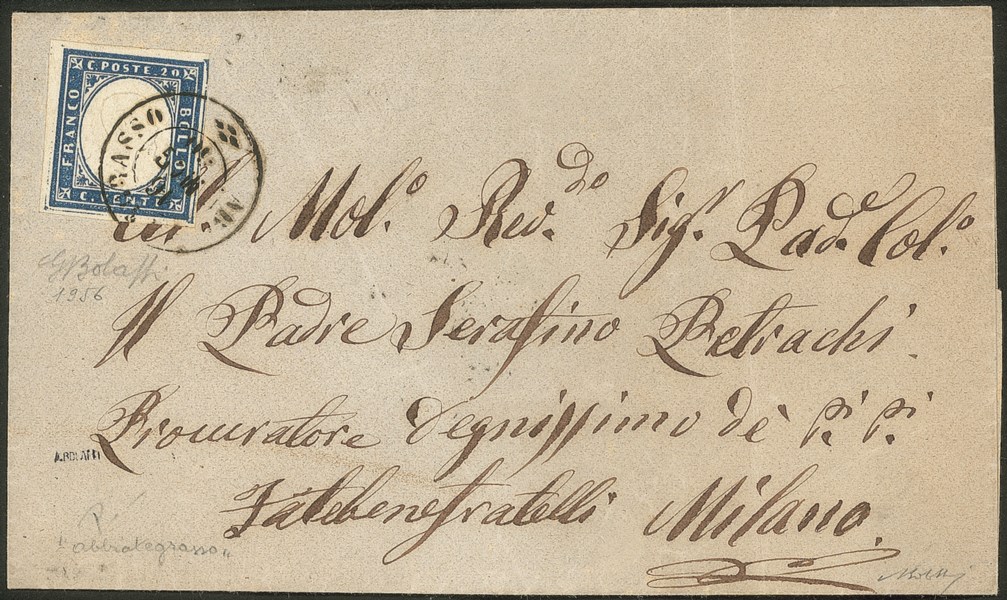 C. POSTE. 20
FRANCO
BOLLO
C. CENT
RASSO
Mol.º Rev.do Sig.r Pad.e Col.º
Il Padre Serafino Petrachi
Procuratore degnissimo dè P.i P.i
Fatebenefratelli Milano.
G Bolaffi
1956
A.BOLAFFI
"abbiategrasso"